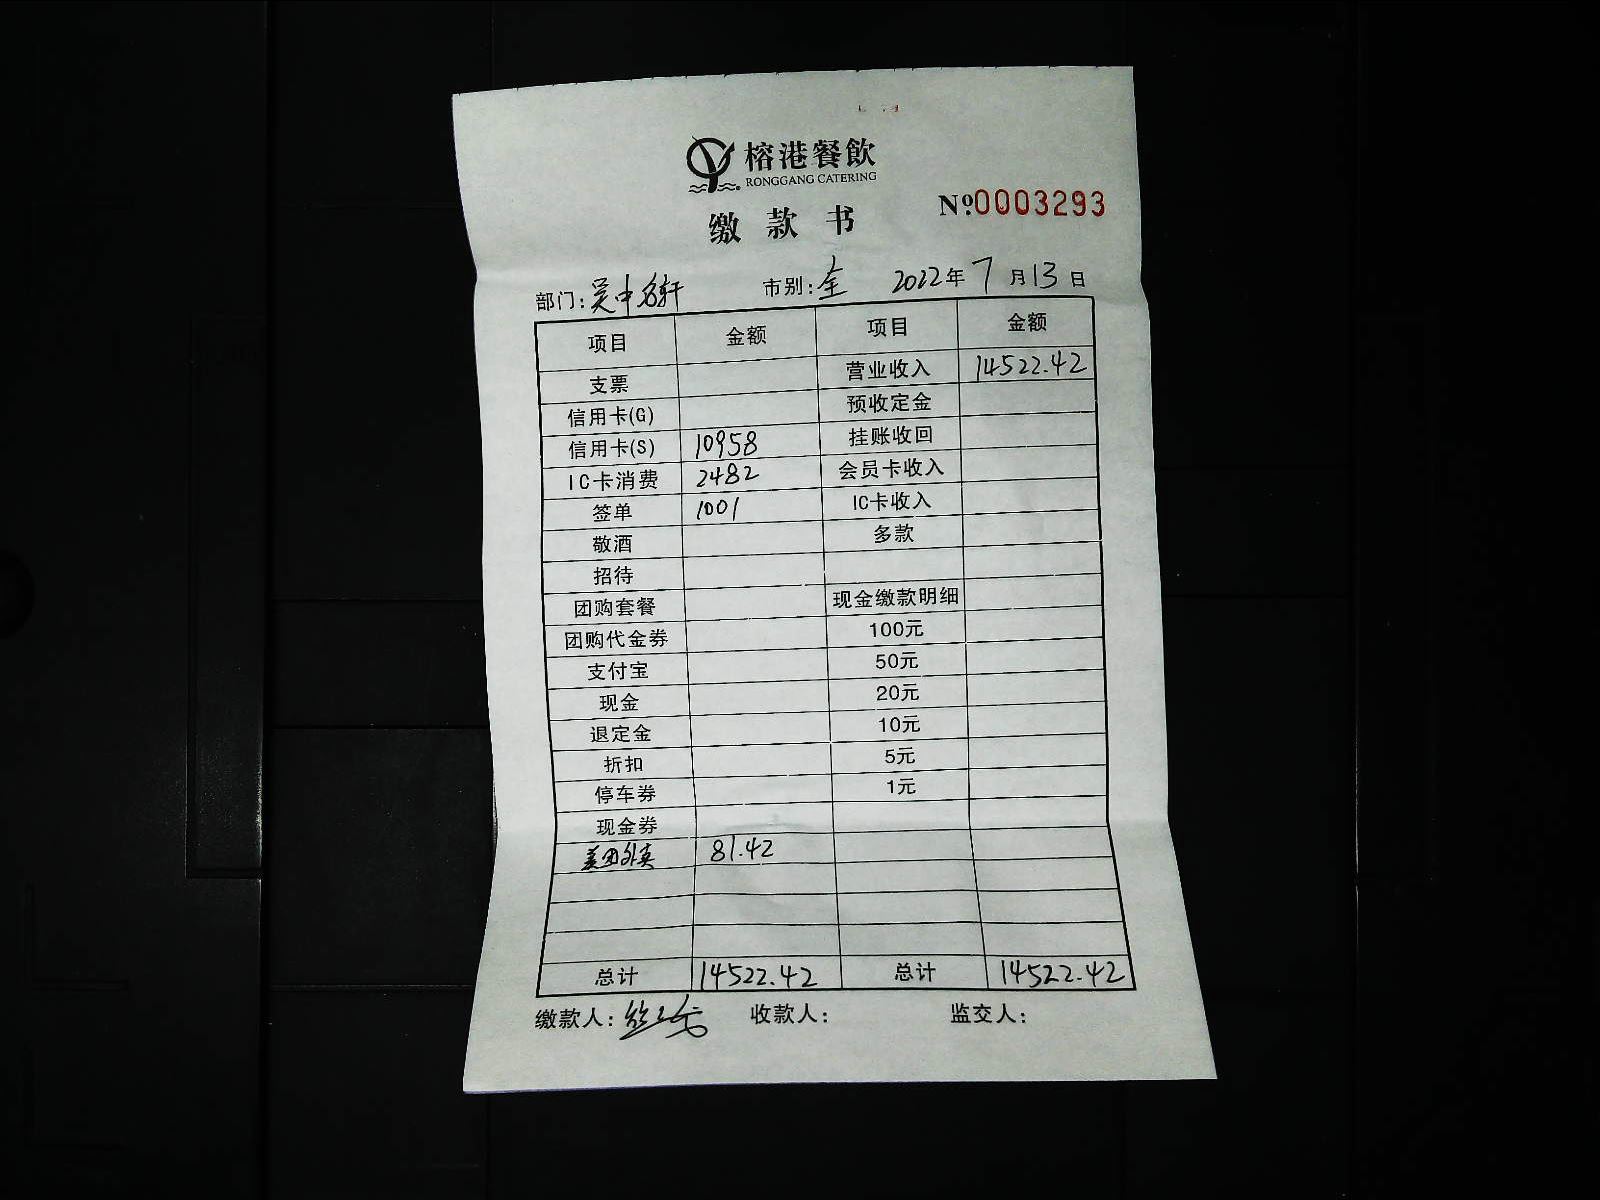 榕港餐飲
RONGGANG CATERING
缴款书
Nº0003293
部门:吴中名轩 市别:全 2022年7月13日
项目 金额 项目 金额
支票 营业收入 14522.42
信用卡(G) 预收定金
信用卡(S) 10958 挂账收回
IC卡消费 2482 会员卡收入
签单 1001 IC卡收入
敬酒 多款
招待
团购套餐 现金缴款明细
团购代金券 100元
支付宝 50元
现金 20元
退定金 10元
折扣 5元
停车券 1元
现金券
美团外卖 81.42
总计 14522.42 总计 14522.42
缴款人: 收款人: 监交人: